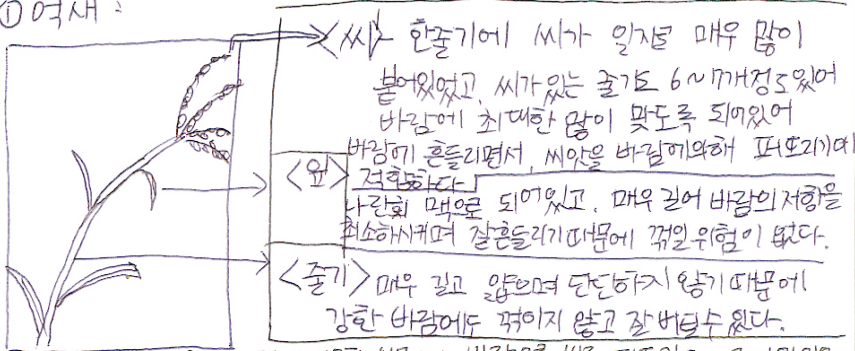 ① 억새 :
<씨> 한줄기에 씨가 일자로 매우 많이
붙어있었고, 씨가 있는 줄기도 6~7개정도있어
바람에 최대한 많이 맞도록 되어있어
바람에 흔들리면서, 씨앗을 바람에의해 퍼뜨리기에
적합하다
<잎> 나란히 맥으로 되어있고, 매우 길어 바람의 저항을
최소화시키며 잘흔들리기때문에 꺾일 위험이 없다.
<줄기> 매우 길고 얇으며 단단하지 않기때문에
강한 바람에도 꺾이지 않고 잘 버틸수 있다.